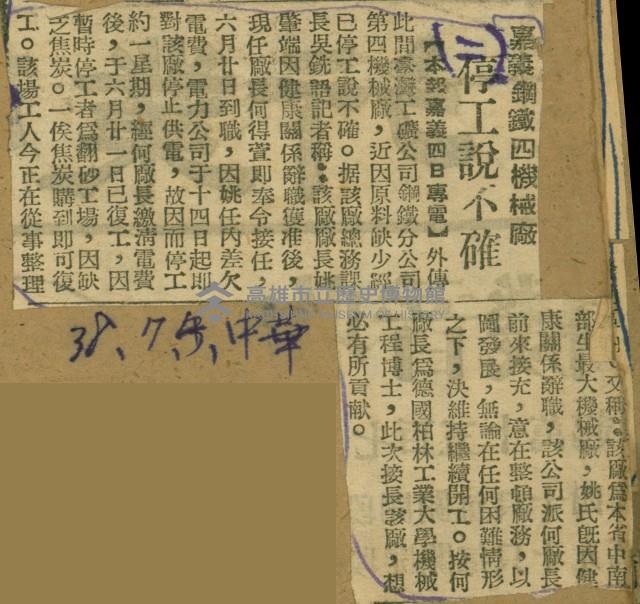 嘉義鋼鐵四機械廠
停工說不確
【本報嘉義四日專電】外傳
此間臺灣工礦公司鋼鐵分公司
第四機械廠，近因原料缺少經
已停工說不確。据該廠總務課
長吳銑語記者稱：該廠廠長姚
肇端因健康關係辭職獲准後，
現任廠長何得萱即奉令接任，
六月廿日到職，因姚任內差欠
電費，電力公司于十四日起即
對該廠停止供電，故因而停工
約一星期，經何廠長繳清電費
後，于六月廿一日已復工，因
暫時停工者為翻砂工場，因缺
乏焦炭。一俟焦炭購到即可復
工。該場工人今正在從事整理
又稱：該廠為本省中南
部生最大機械廠，姚氏既因健
康關係辭職，該公司派何廠長
前來接充，意在整頓廠務，以
圖發展，無論在任何困難情形
之下，決維持繼續開工。按何
廠長為德國柏林工業大學機械
工程博士，此次接長該廠，想
必有所貢献。
38、7、5、中華
高雄市立歷史博物館
KAOHSIUNG MUSEUM OF HISTORY